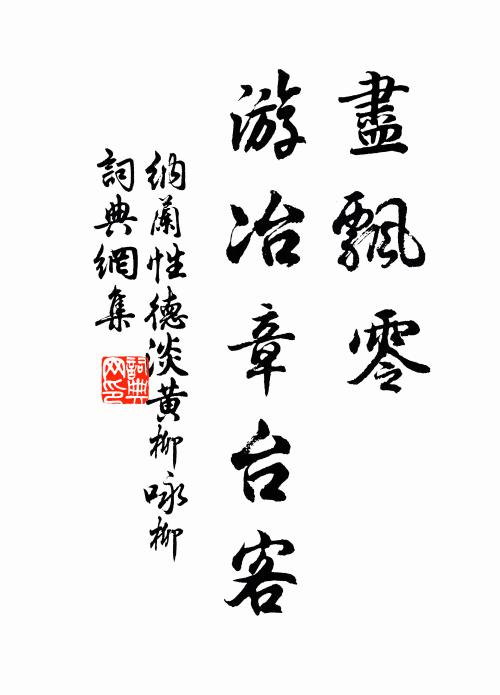 盡飄零
游冶章台客
納蘭性德淡黄柳咏柳
詞典網集
詞典网印